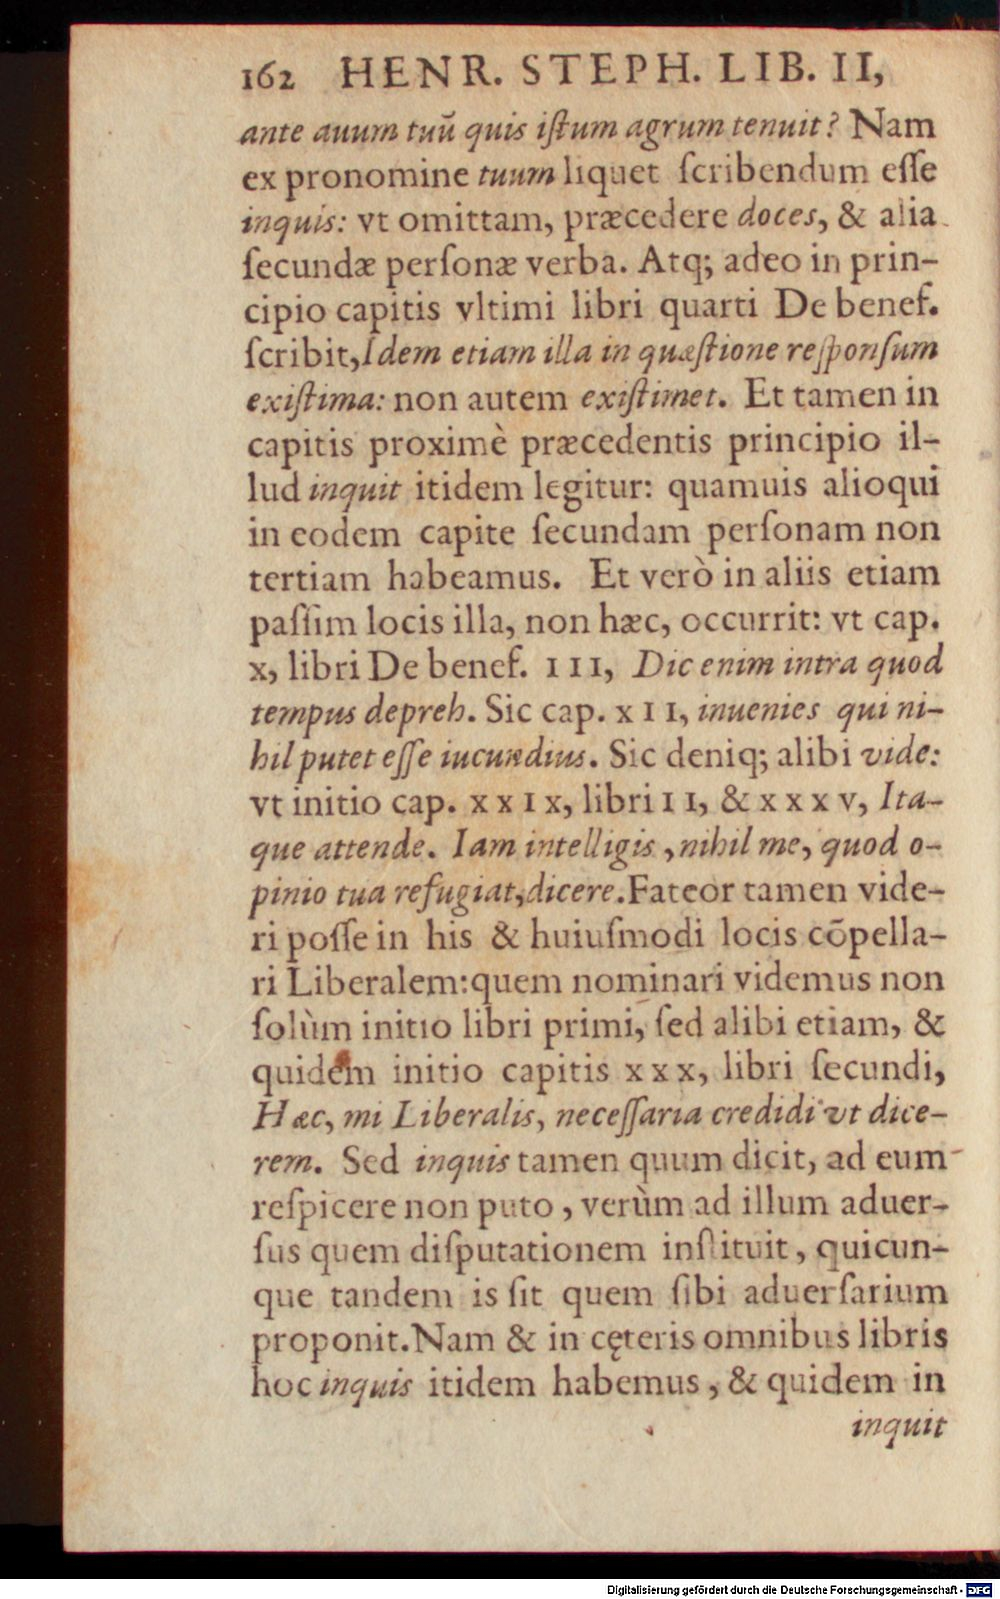 162 HENR. STEPH. LIB. II,
ante auum tuū quis iſtum agrum tenuit? Nam
ex pronomine tuum liquet ſcribendum eſſe
inquis: vt omittam, præcedere doces, & alia
ſecundæ perſonæ verba. Atq; adeo in prin-
cipio capitis vltimi libri quarti De benef.
ſcribit, Idem etiam illa in quæſtione reſponſum
exiſtima: non autem exiſtimet. Et tamen in
capitis proximè præcedentis principio il-
lud inquit itidem legitur: quamuis alioqui
in eodem capite ſecundam perſonam non
tertiam habeamus. Et verò in aliis etiam
paſſim locis illa, non hæc, occurrit: vt cap.
x, libri De benef. III, Dic enim intra quod
tempus depreh. Sic cap. xII, inuenies qui ni-
hil putet eſſe iucundius. Sic deniq; alibi vide:
vt initio cap. xxIx, libri II, & xxxv, Ita-
que attende. Iam intelligis, nihil me, quod o-
pinio tua refugiat, dicere. Fateor tamen vide-
ri poſſe in his & huiuſmodi locis cōpella-
ri Liberalem: quem nominari videmus non
ſolùm initio libri primi, ſed alibi etiam, &
quidem initio capitis xxx, libri ſecundi,
Hæc, mi Liberalis, neceſſaria credidi vt dice-
rem. Sed inquis tamen quum dicit, ad eum
reſpicere non puto, verùm ad illum aduer-
ſus quem diſputationem inſtituit, quicun-
que tandem is ſit quem ſibi aduerſarium
proponit. Nam & in cęteris omnibus libris
hoc inquis itidem habemus, & quidem in
inquit
Digitalisierung gefördert durch die Deutsche Forschungsgemeinschaft - DFG